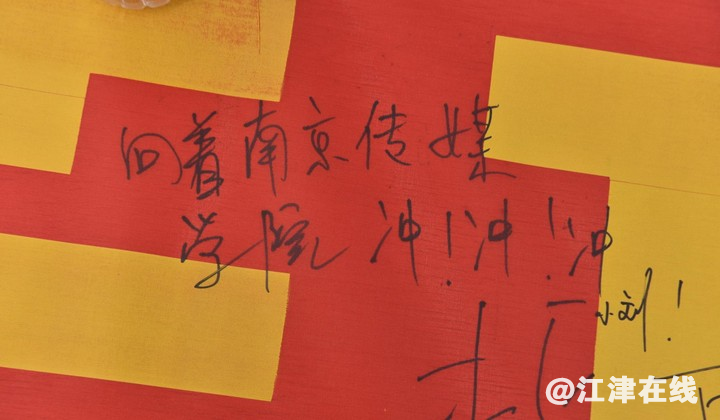 向着南京传媒
学院 冲!冲!冲
一小刘!
@江津在线